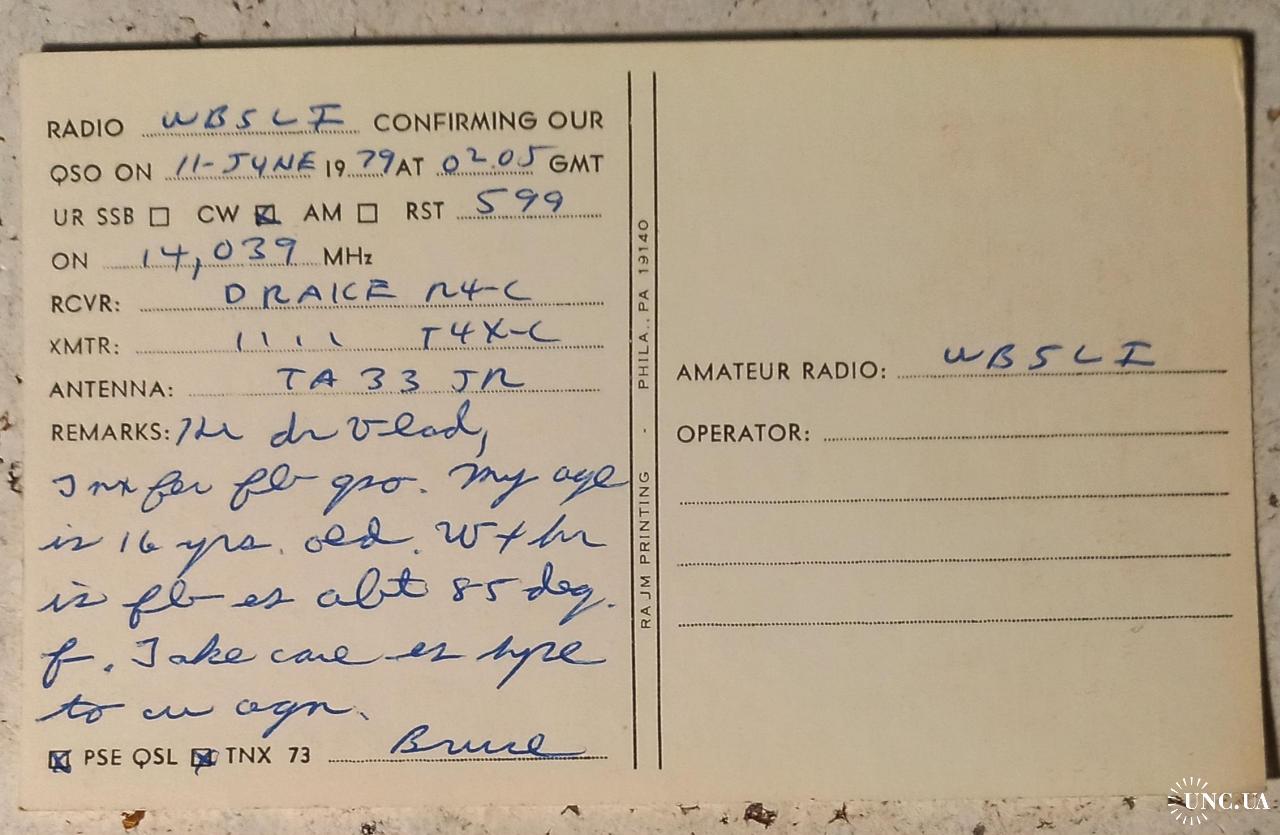 RADIO WB5LI CONFIRMING OUR
QSO ON 11-JUNE 1979 AT 02.05 GMT
UR SSB ☐ CW ☒ AM ☐ RST 599
ON 14,039 MHz
RCVR: DRAKE R4-C
XMTR: 1111 T4X-C
ANTENNA: TA33 JR
REMARKS: dr Vlad,
Tnx for fb qso. My age
is 16 yrs. old. Wx hr
is fb es abt 85 deg.
f. Take care es hpe
to cu agn.
☒ PSE QSL ☒ TNX 73 Bruce
RAJM PRINTING - PHILA., PA 19140
AMATEUR RADIO: WB5LI
OPERATOR:
UNC.UA